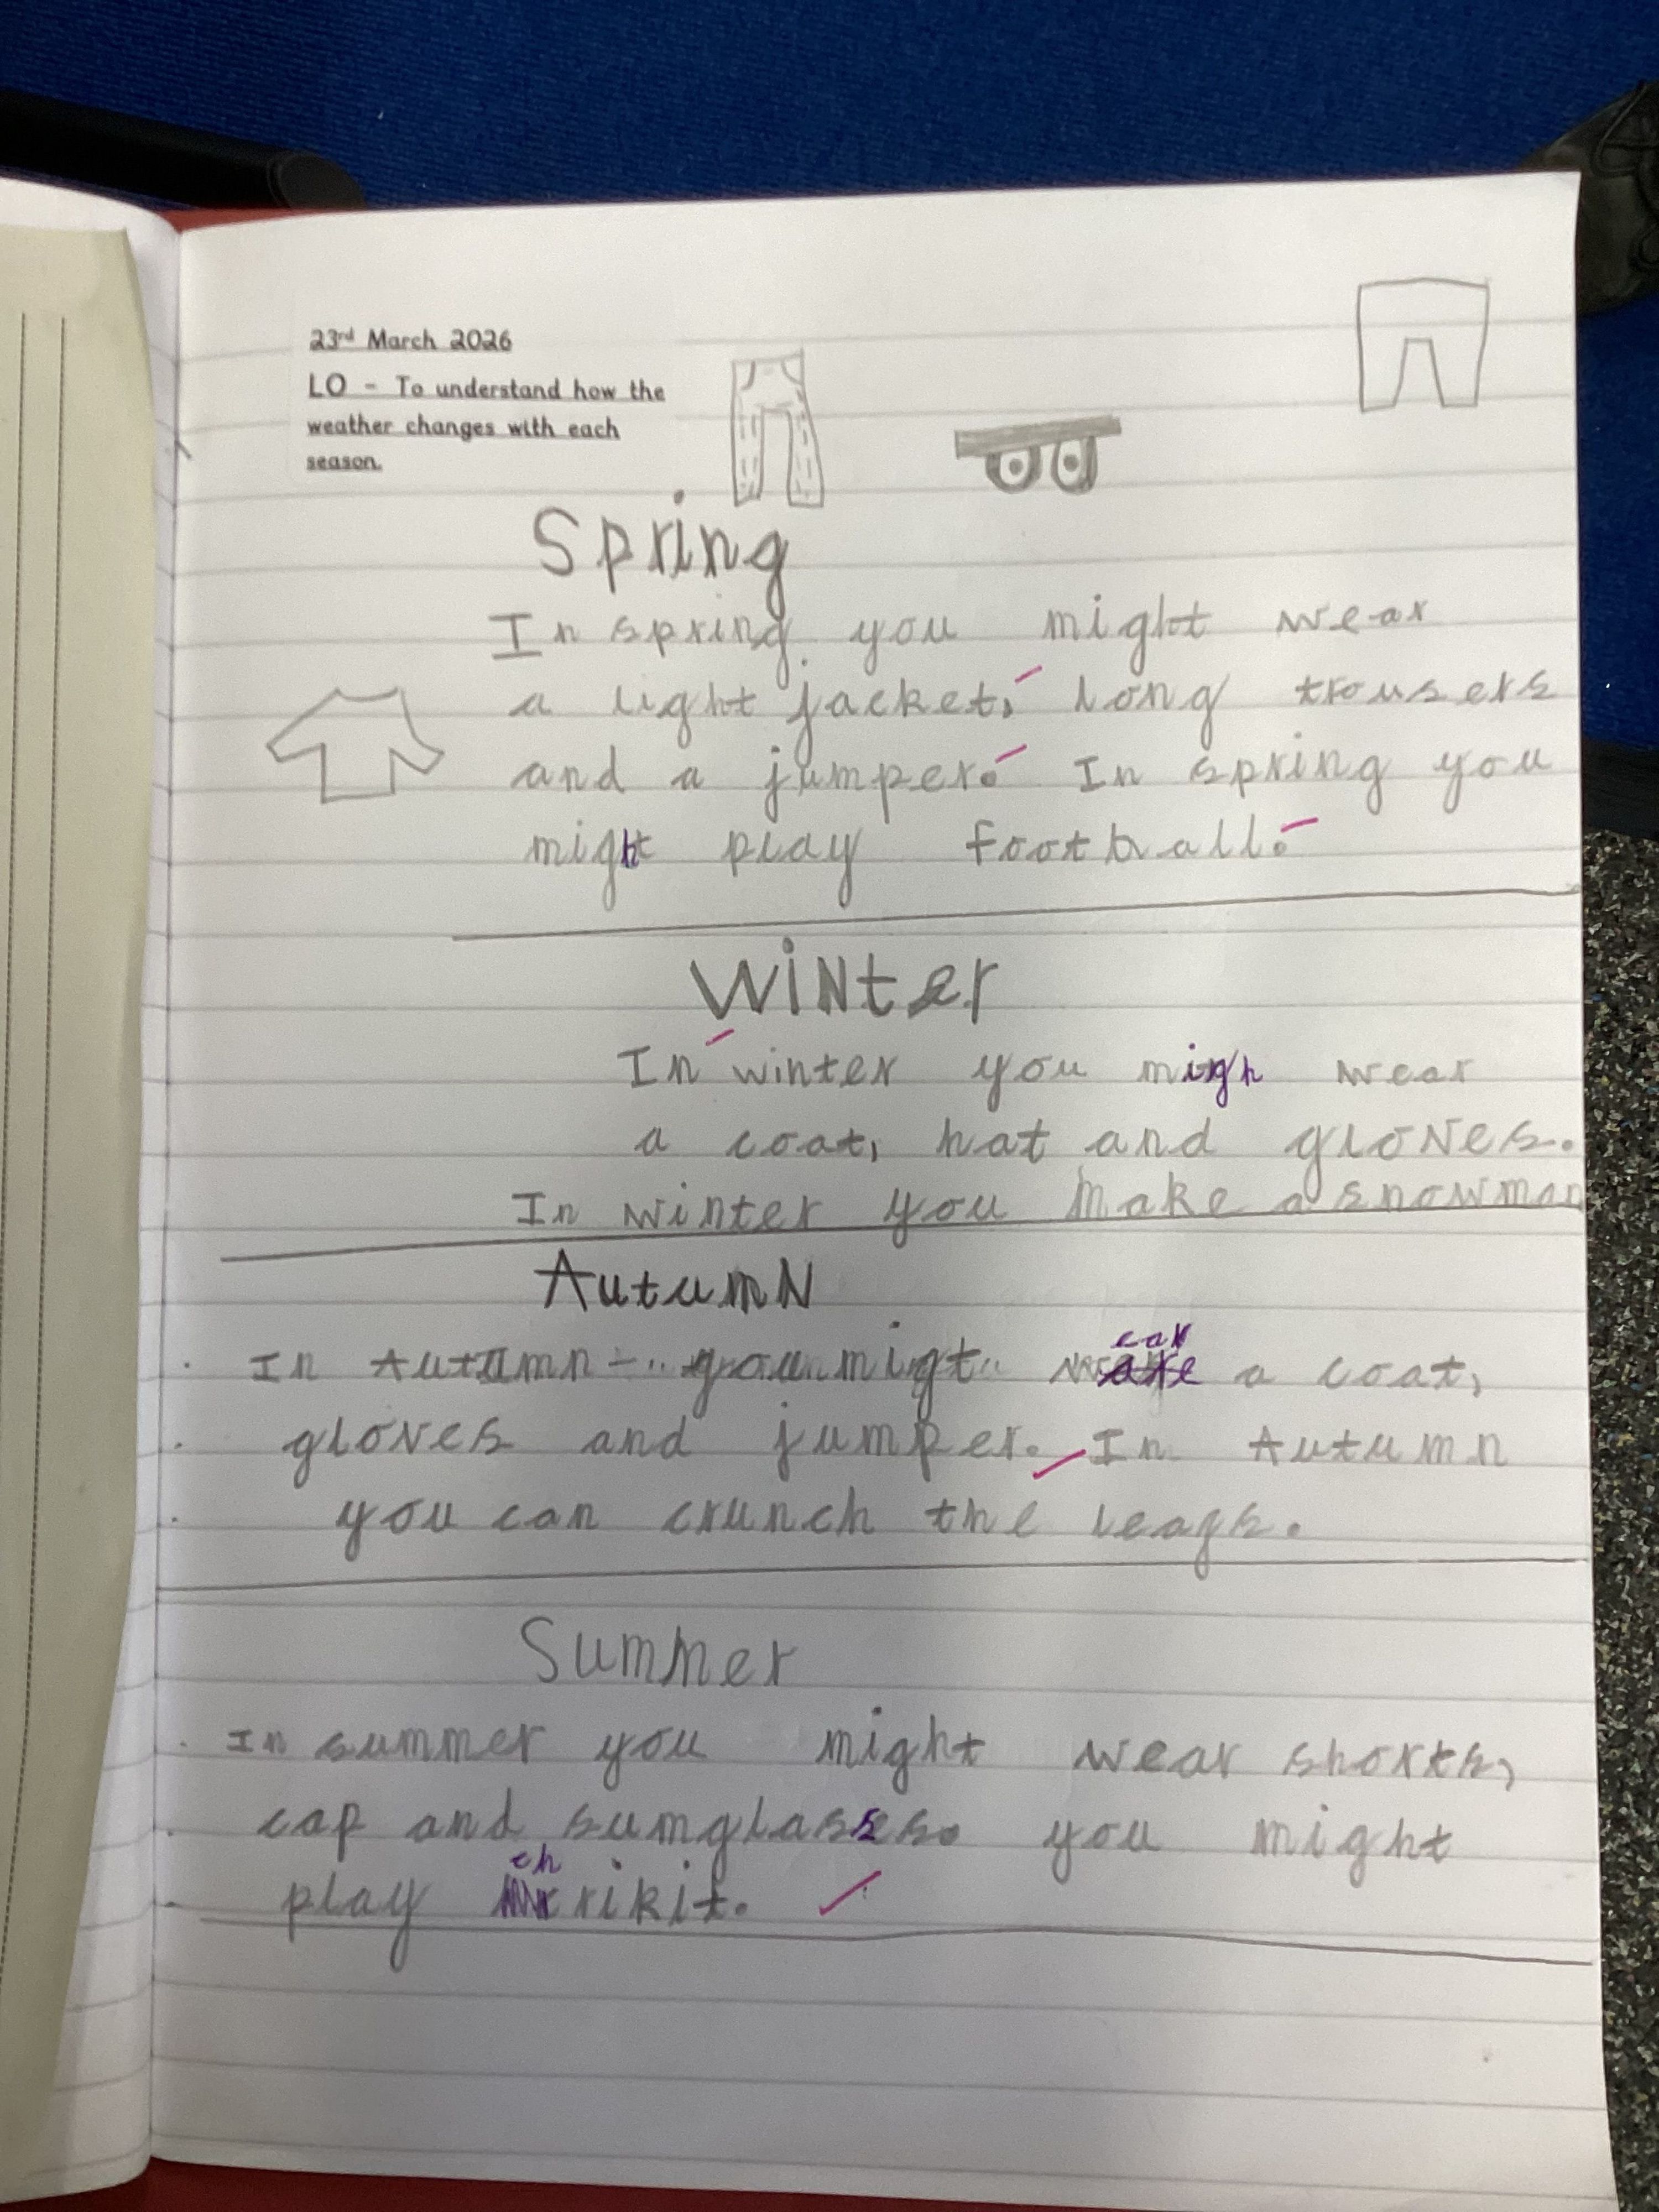 23rd March 2026
LO - To understand how the
weather changes with each
season.
Spring
In spring you might wear
a light jacket, long trousers
and a jumper. In spring you
might play football.
WiNter
In winter you migh wear
a coat, hat and gloves.
In winter you make a snowman
AutumN
In Autumn you migt wear a coat,
gloves and jumper. In Autumn
you can crunch the leags.
Summer
In summer you might wear shorts,
cap and sumglasses. you might
play chrikit.